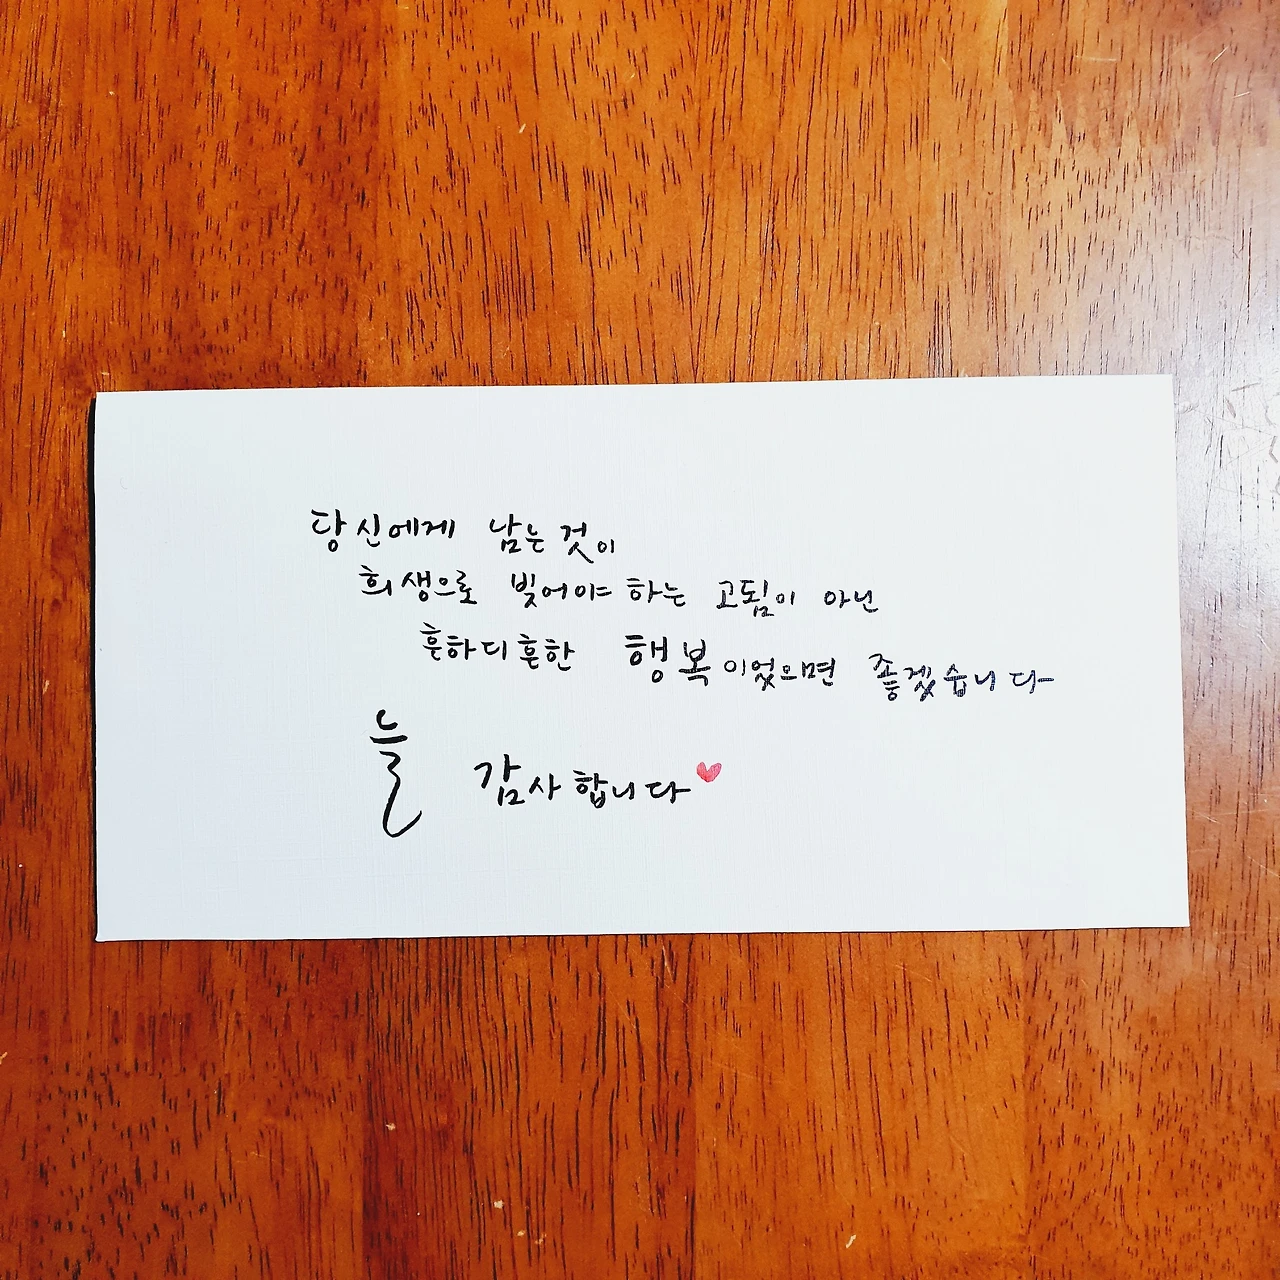 당신에게 남는것이
희생으로 빚어야 하는 고됨이 아닌
흔하디흔한 행복이었으면 좋겠습니다
늘 감사합니다